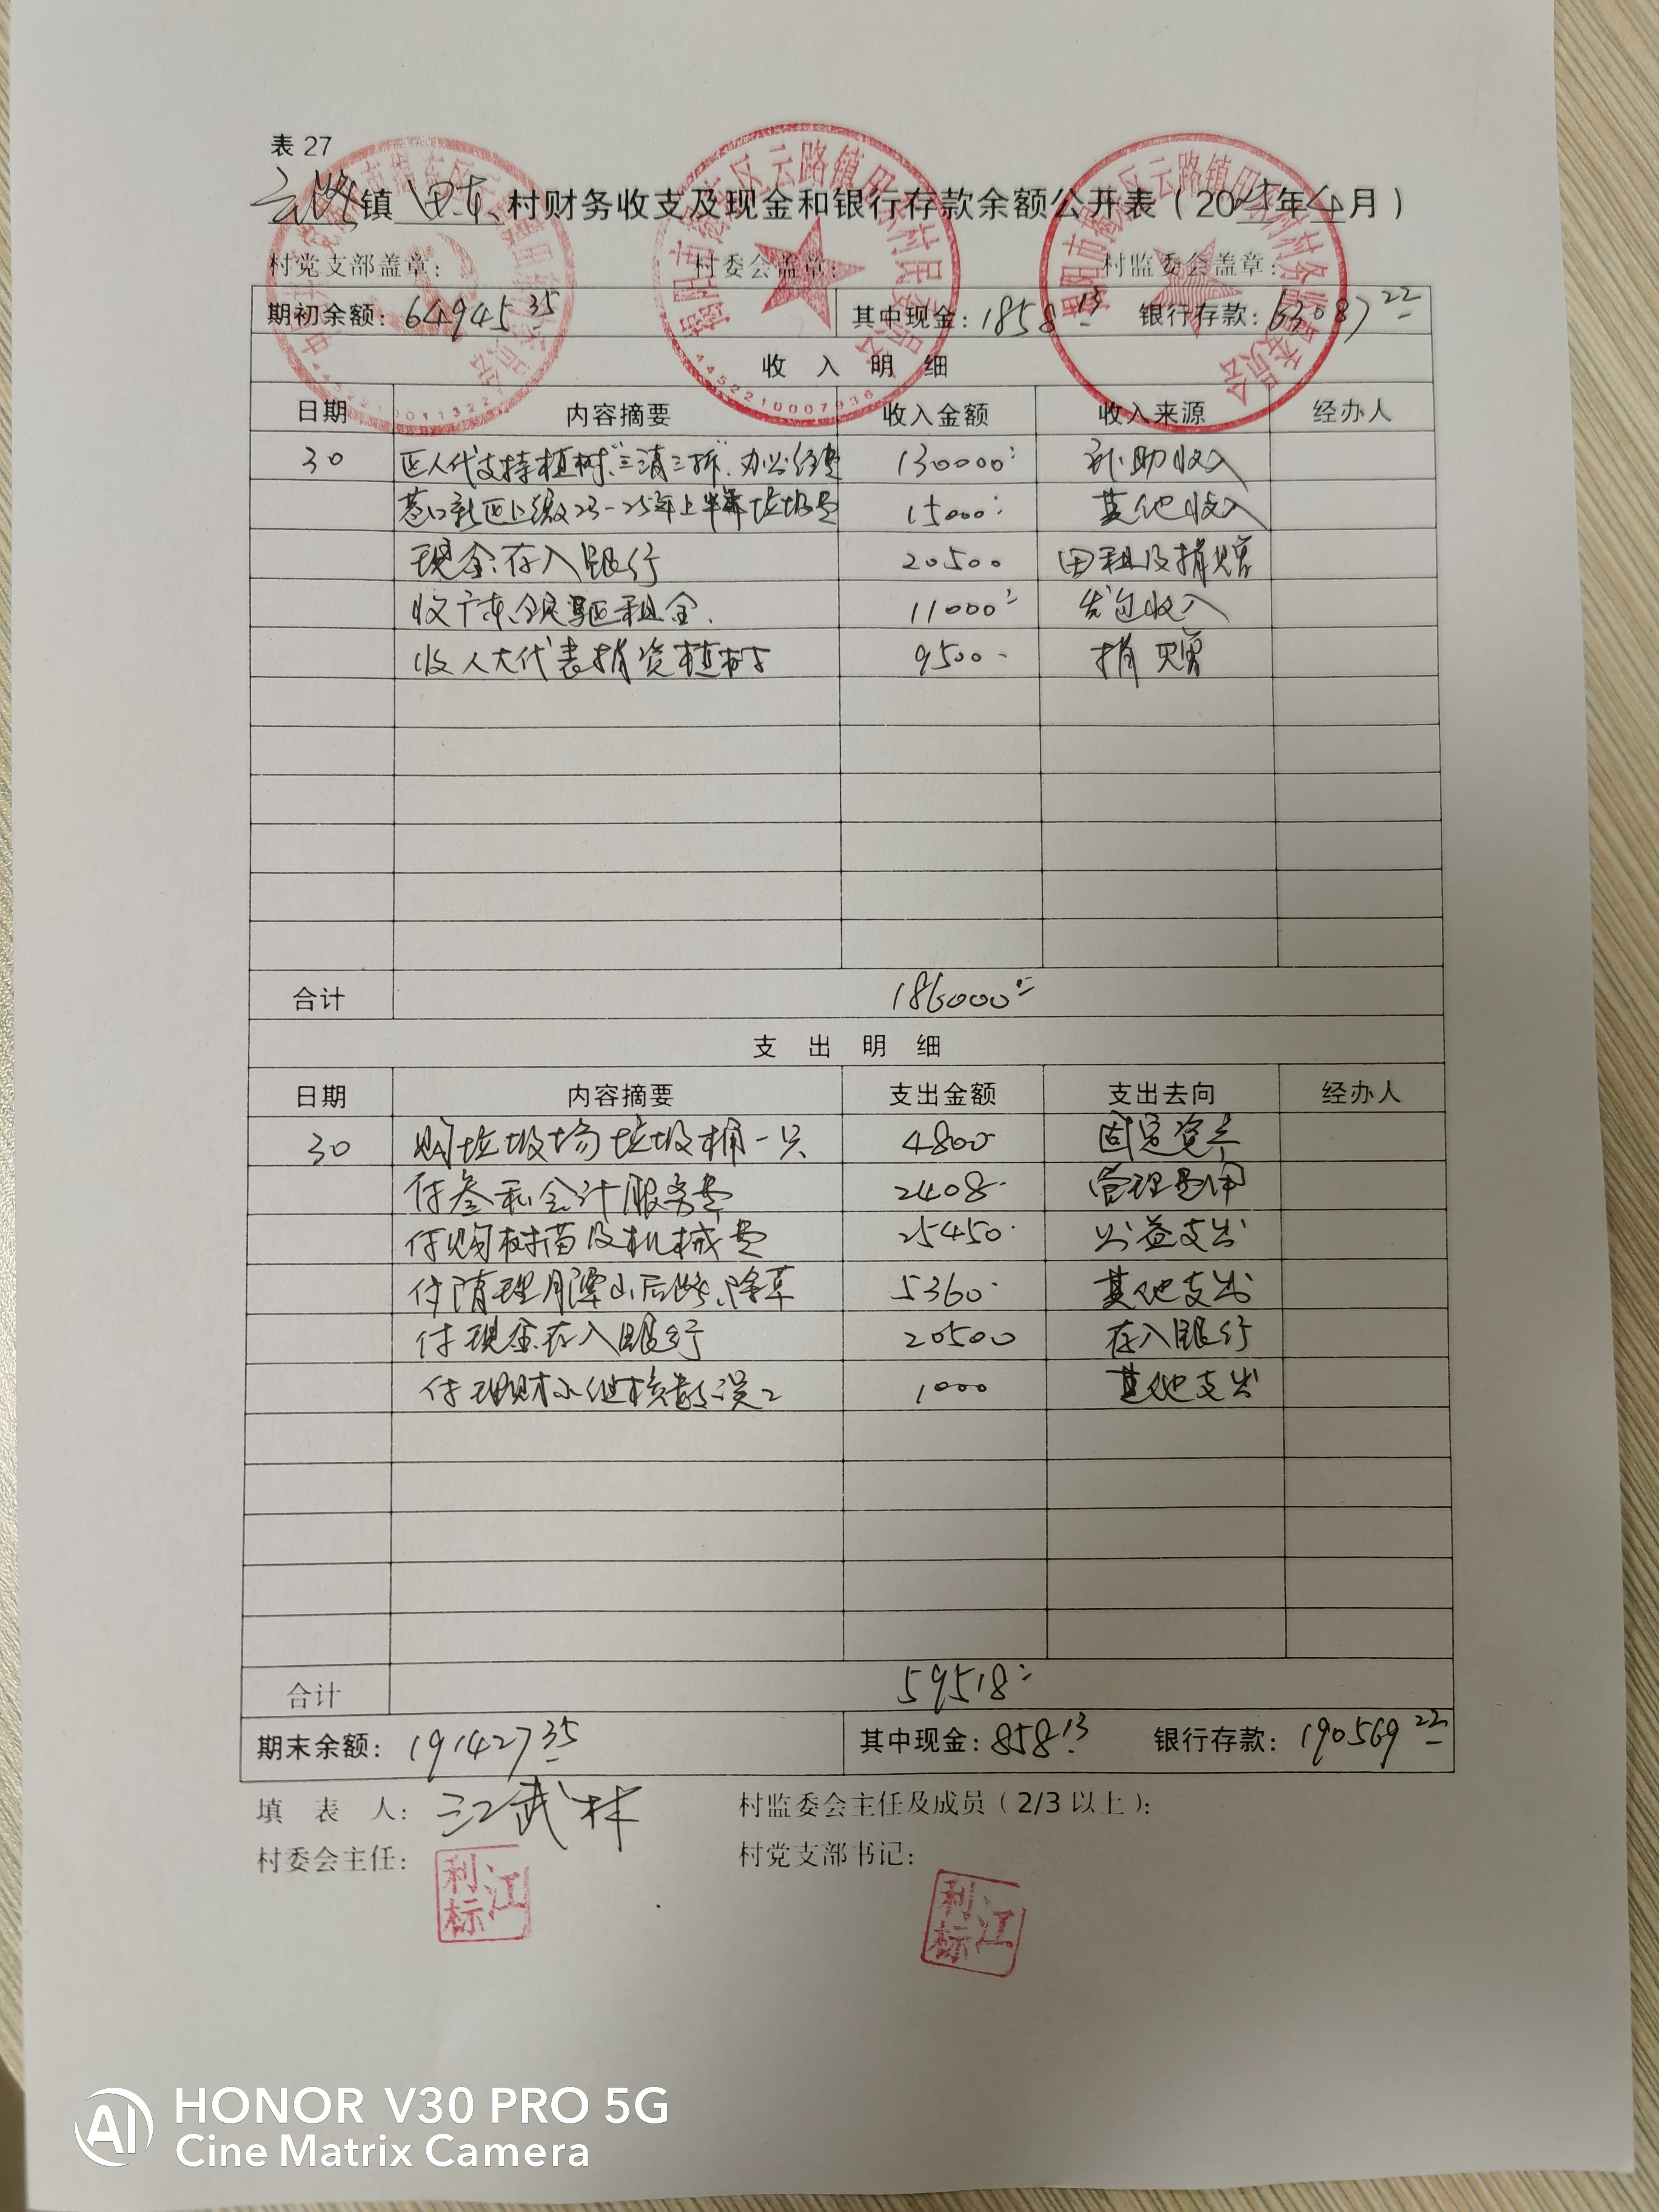 表 27
云路镇 田东 村财务收支及现金和银行存款余额公开表（2025年4月）
村党支部盖章： 村委会盖章： 村监委会盖章：
期初余额：64945.35 其中现金：1858.13 银行存款：63087.22
收 入 明 细
日期 内容摘要 收入金额 收入来源 经办人
30 区人代支持植树、"三清三拆"、办公经费 130000 补助收入
巷口新区上缴23-25年上半年垃圾费 15000 其他收入
现金存入银行 20500 田租及捐赠
收广东 租金 11000 发包收入
收人大代表捐资植树 9500 捐赠
合计 186000
支 出 明 细
日期 内容摘要 支出金额 支出去向 经办人
30 购垃圾场垃圾桶一只 4800 固定资产
付叁和会计服务费 2408 管理费用
付购树苗及机械费 25450 公益支出
付清理月潭山后 除草 5360 其他支出
付现金存入银行 20500 存入银行
付理财小组 误工 1000 其他支出
合计 59518
期末余额：191427.35 其中现金：858.13 银行存款：190569.22
填 表 人：江武林 村监委会主任及成员（2/3 以上）：
村委会主任： 江利标 村党支部书记： 江利标
4452210007936
HONOR V30 PRO 5G
AI Cine Matrix Camera